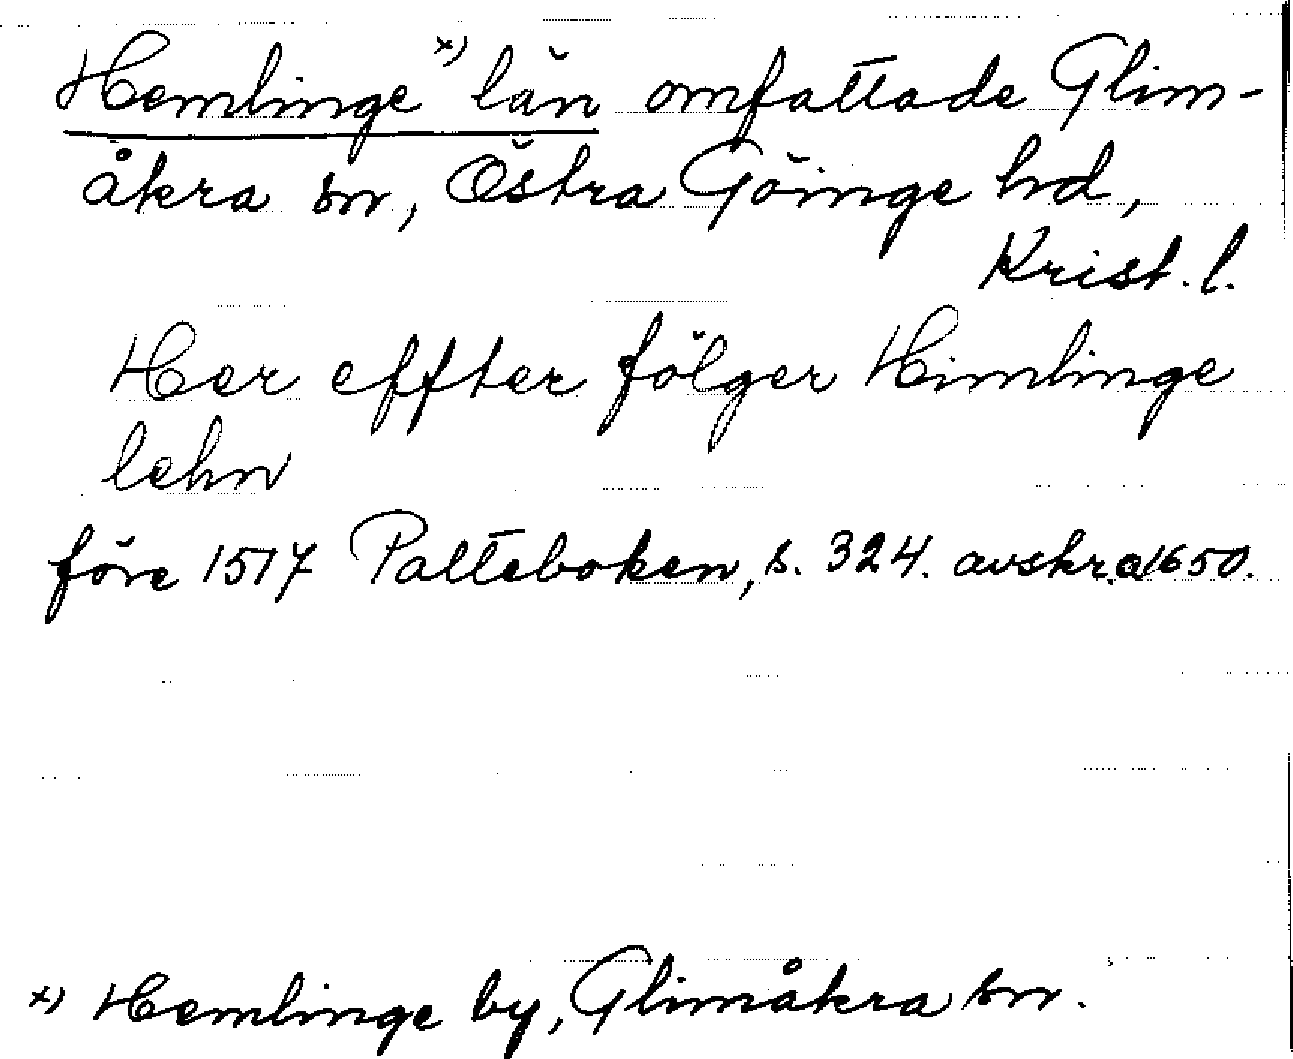 Hemlinge x) län omfattade Glim-
åkra sn, Östra Göinge hd,
Krist. l.
Her effter fölger Himlinge
lehn
före 1517 Palteboken, s. 324. avskr. a 1650.
x) Hemlinge by, Glimåkra sn.